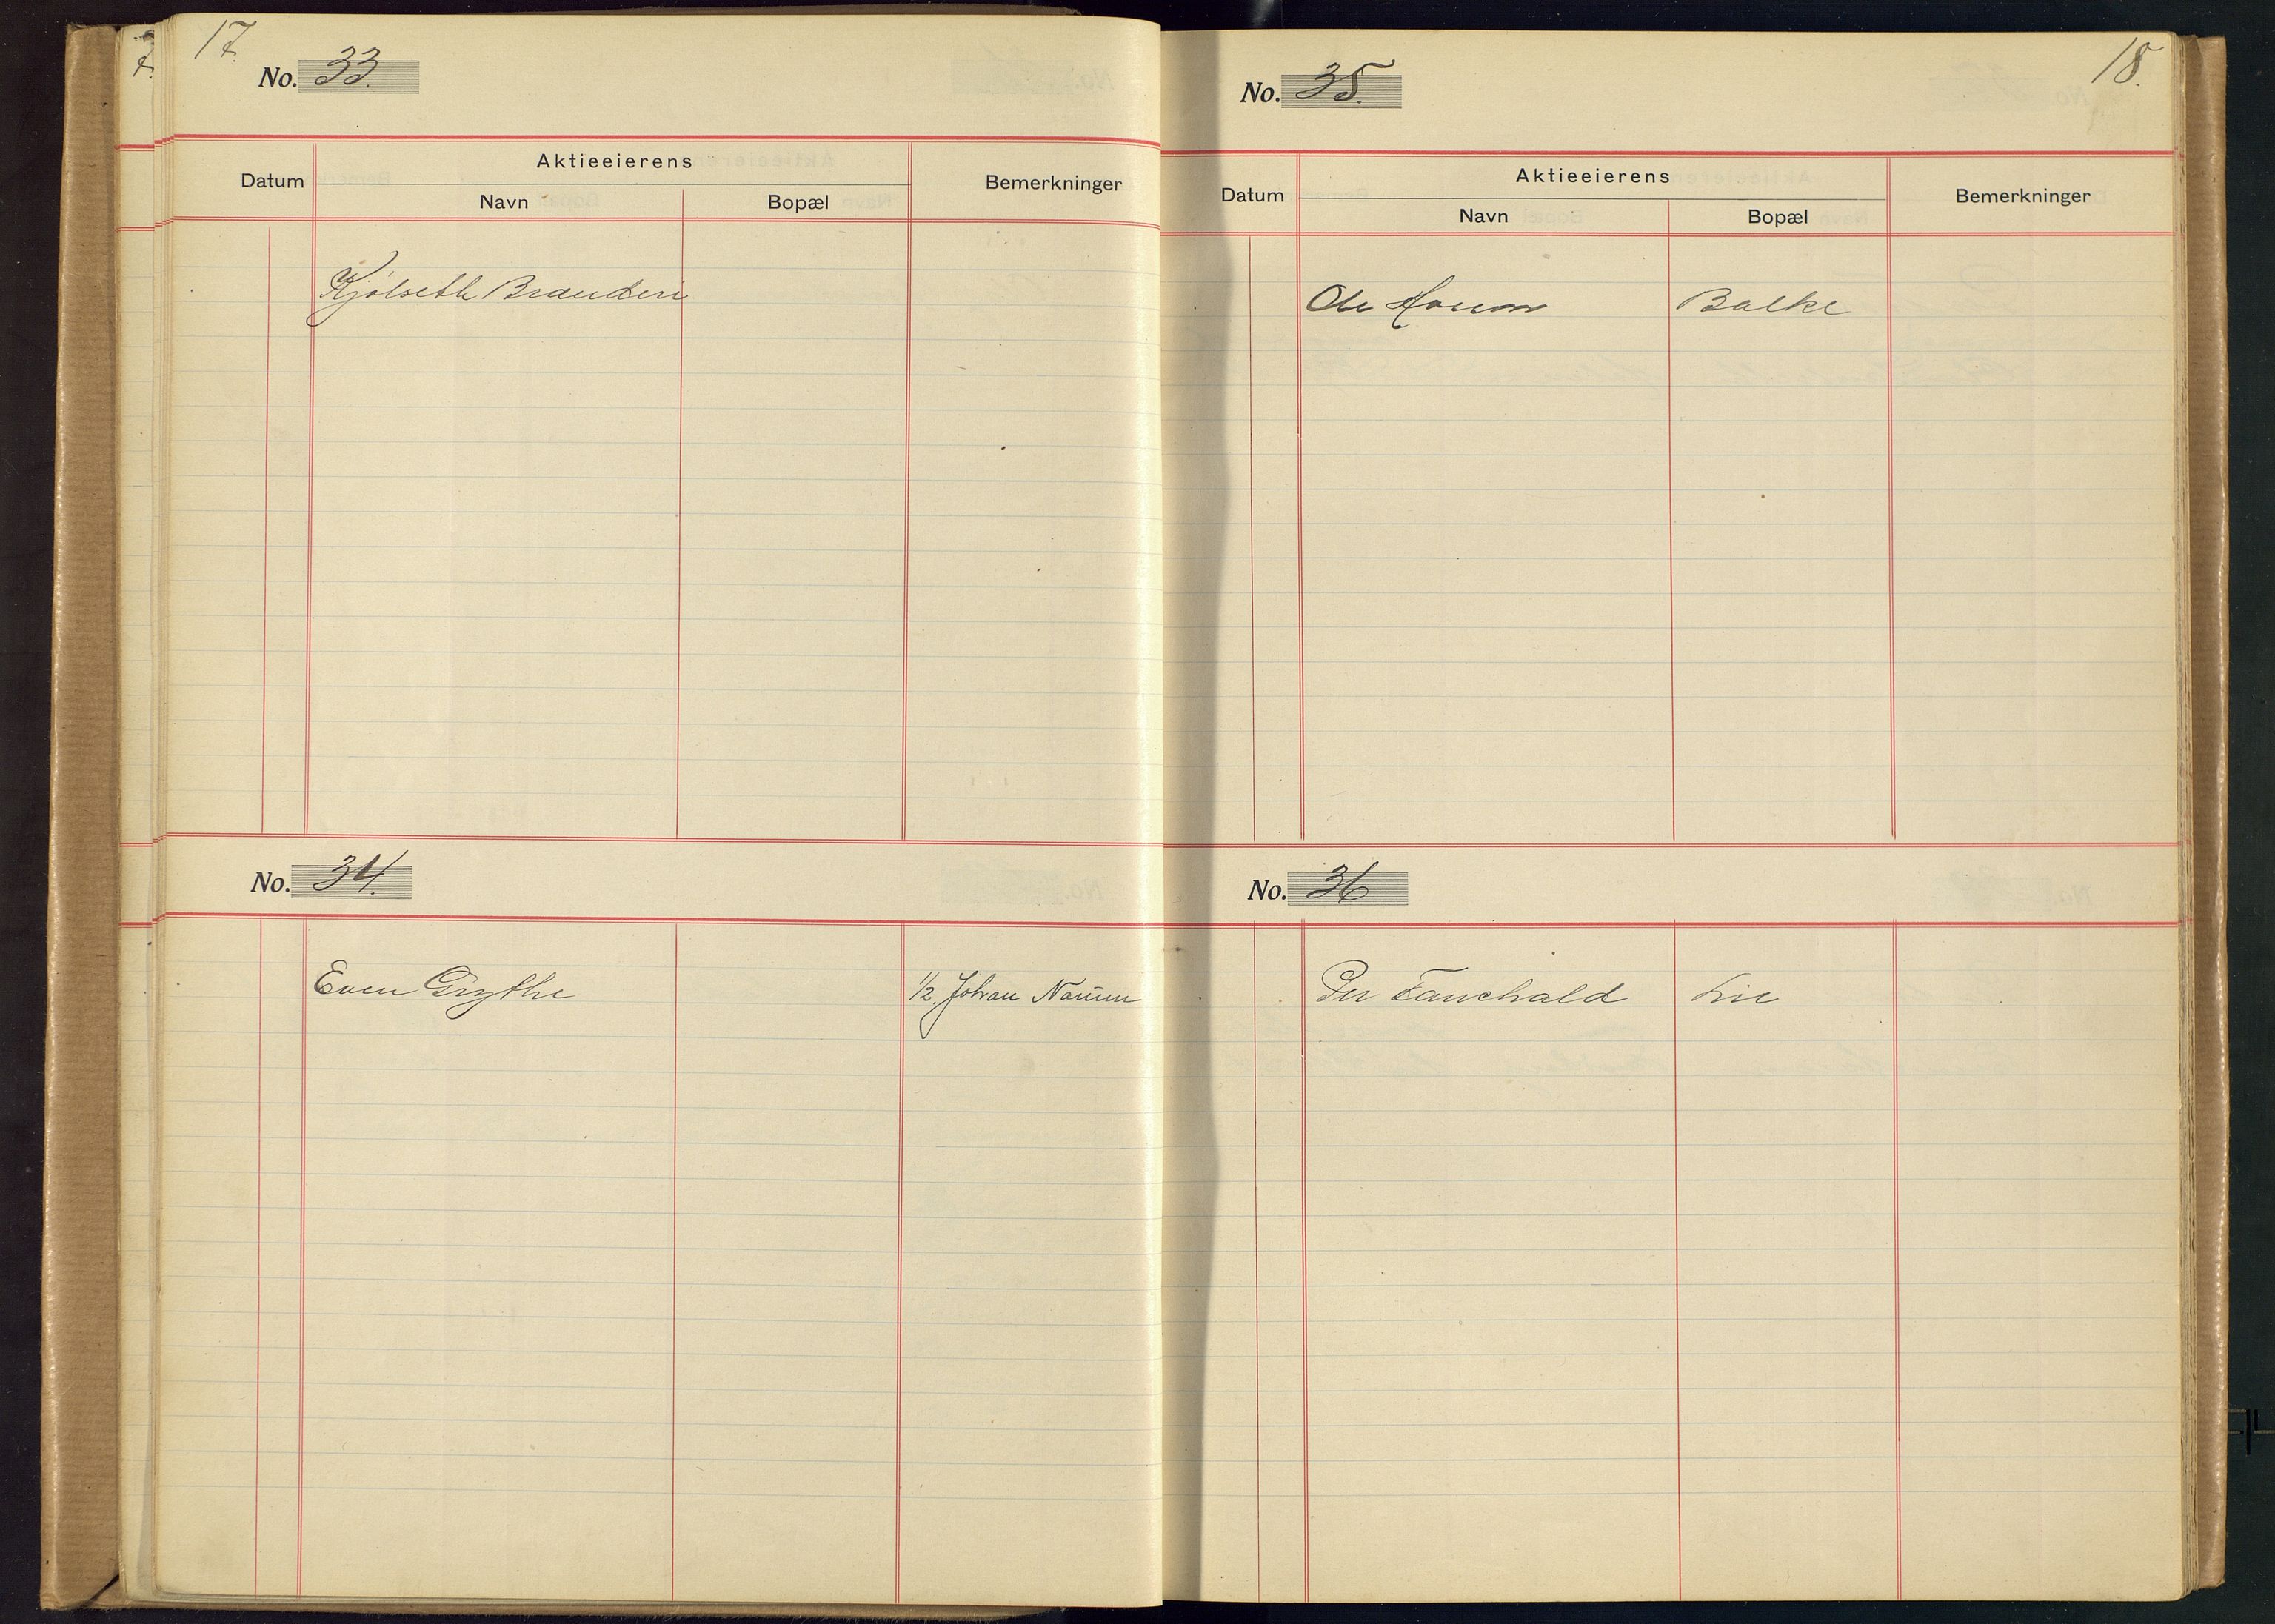 17.
No. 33.
Datum
Aktieeierens
Navn
Bopæl
Bemerkninger
Kjølseth Brænderi
No. 34.
Even Grythe
1/2. Johan Narum
18.
No. 35.
Datum
Aktieeierens
Navn
Bopæl
Bemerkninger
Ole
Balke
No. 36
Per Fauchald
Lie